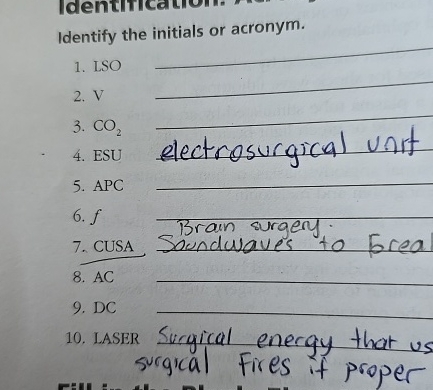 Identification:
Identify the initials or acronym.
1. LSO
2. V
3. CO₂
4. ESU electrosurgical unit
5. APC
6. f
Brain surgery.
7. CUSA Soundwaves to brea
8. AC
9. DC
10. LASER Surgical energy that us
surgical Fires if proper